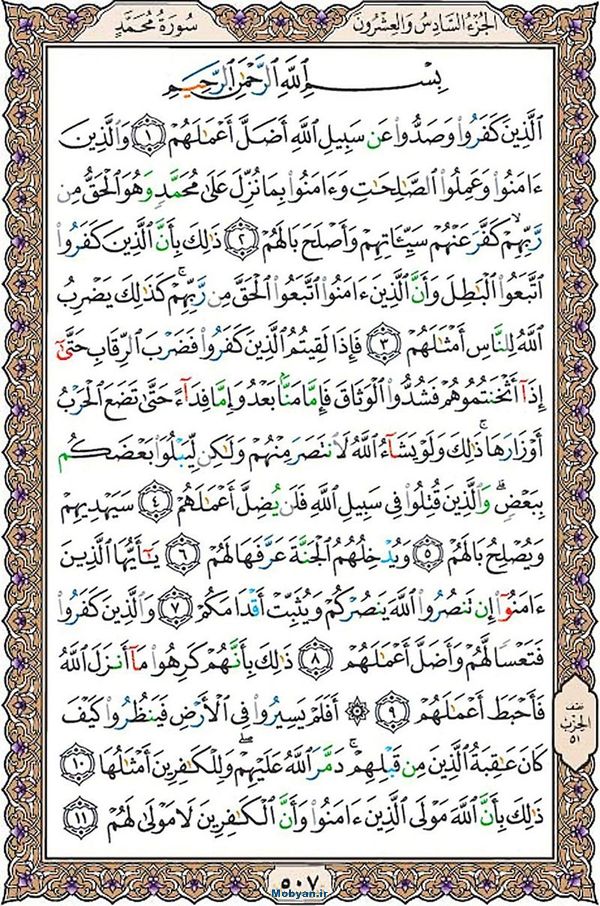 سُورَةُ مُحَمَّدٍ الجُزْءُ السَّادِسُ وَالعِشْرُونَ
بِسْمِ ٱللَّهِ ٱلرَّحْمَٰنِ ٱلرَّحِيمِ
ٱلَّذِينَ كَفَرُوا۟ وَصَدُّوا۟ عَن سَبِيلِ ٱللَّهِ أَضَلَّ أَعْمَٰلَهُمْ ﴿١﴾ وَٱلَّذِينَ
ءَامَنُوا۟ وَعَمِلُوا۟ ٱلصَّٰلِحَٰتِ وَءَامَنُوا۟ بِمَا نُزِّلَ عَلَىٰ مُحَمَّدٍ وَهُوَ ٱلْحَقُّ مِن
رَّبِّهِمْ ۙ كَفَّرَ عَنْهُمْ سَيِّـَٔاتِهِمْ وَأَصْلَحَ بَالَهُمْ ﴿٢﴾ ذَٰلِكَ بِأَنَّ ٱلَّذِينَ كَفَرُوا۟
ٱتَّبَعُوا۟ ٱلْبَٰطِلَ وَأَنَّ ٱلَّذِينَ ءَامَنُوا۟ ٱتَّبَعُوا۟ ٱلْحَقَّ مِن رَّبِّهِمْ ۚ كَذَٰلِكَ يَضْرِبُ
ٱللَّهُ لِلنَّاسِ أَمْثَٰلَهُمْ ﴿٣﴾ فَإِذَا لَقِيتُمُ ٱلَّذِينَ كَفَرُوا۟ فَضَرْبَ ٱلرِّقَابِ حَتَّىٰٓ
إِذَآ أَثْخَنتُمُوهُمْ فَشُدُّوا۟ ٱلْوَثَاقَ فَإِمَّا مَنًّۢا بَعْدُ وَإِمَّا فِدَآءً حَتَّىٰ تَضَعَ ٱلْحَرْبُ
أَوْزَارَهَا ۚ ذَٰلِكَ وَلَوْ يَشَآءُ ٱللَّهُ لَٱنتَصَرَ مِنْهُمْ وَلَٰكِن لِّيَبْلُوَا۟ بَعْضَكُم
بِبَعْضٍ ۗ وَٱلَّذِينَ قُتِلُوا۟ فِى سَبِيلِ ٱللَّهِ فَلَن يُضِلَّ أَعْمَٰلَهُمْ ﴿٤﴾ سَيَهْدِيهِمْ
وَيُصْلِحُ بَالَهُمْ ﴿٥﴾ وَيُدْخِلُهُمُ ٱلْجَنَّةَ عَرَّفَهَا لَهُمْ ﴿٦﴾ يَٰٓأَيُّهَا ٱلَّذِينَ
ءَامَنُوٓا۟ إِن تَنصُرُوا۟ ٱللَّهَ يَنصُرْكُمْ وَيُثَبِّتْ أَقْدَامَكُمْ ﴿٧﴾ وَٱلَّذِينَ كَفَرُوا۟
فَتَعْسًا لَّهُمْ وَأَضَلَّ أَعْمَٰلَهُمْ ﴿٨﴾ ذَٰلِكَ بِأَنَّهُمْ كَرِهُوا۟ مَآ أَنزَلَ ٱللَّهُ
فَأَحْبَطَ أَعْمَٰلَهُمْ ﴿٩﴾ ۞ أَفَلَمْ يَسِيرُوا۟ فِى ٱلْأَرْضِ فَيَنظُرُوا۟ كَيْفَ
كَانَ عَٰقِبَةُ ٱلَّذِينَ مِن قَبْلِهِمْ ۚ دَمَّرَ ٱللَّهُ عَلَيْهِمْ ۖ وَلِلْكَٰفِرِينَ أَمْثَٰلُهَا ﴿١٠﴾
ذَٰلِكَ بِأَنَّ ٱللَّهَ مَوْلَى ٱلَّذِينَ ءَامَنُوا۟ وَأَنَّ ٱلْكَٰفِرِينَ لَا مَوْلَىٰ لَهُمْ ﴿١١﴾
نصف
الحزب
٥١
٥٠٧
Mobyan.ir